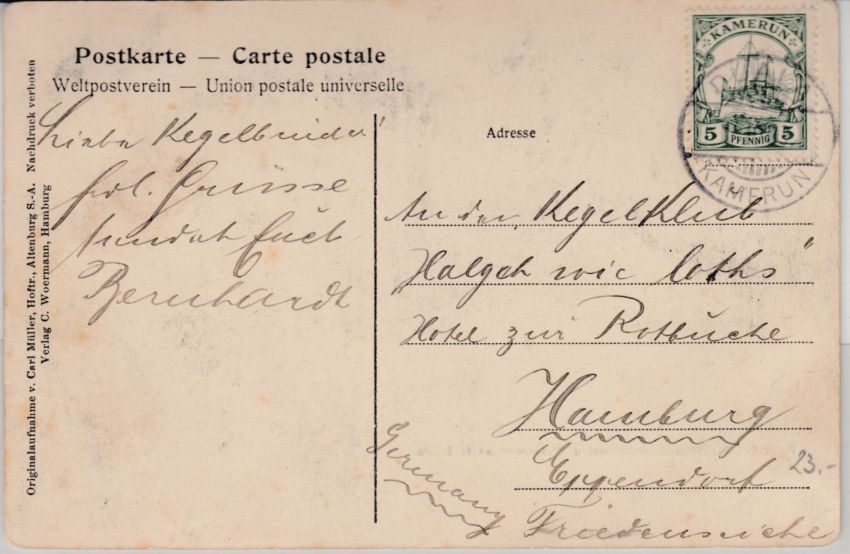 Postkarte — Carte postale
Weltpostverein — Union postale universelle
Originalaufnahme v. Carl Müller, Hoftr., Altenburg S.-A. Nachdruck verboten
Verlag C. Woermann, Hamburg
Liebe Kegelbrüder!
frdl. Grüsse
sendet Euch
Bernhardt
KAMERUN
5 PFENNIG 5
KAMERUN
Adresse
An den Kegelklub
Holzeh wie
Hotel zur Rotbuche
Hamburg
Eppendorf
Friedenseiche
Germany
23.-